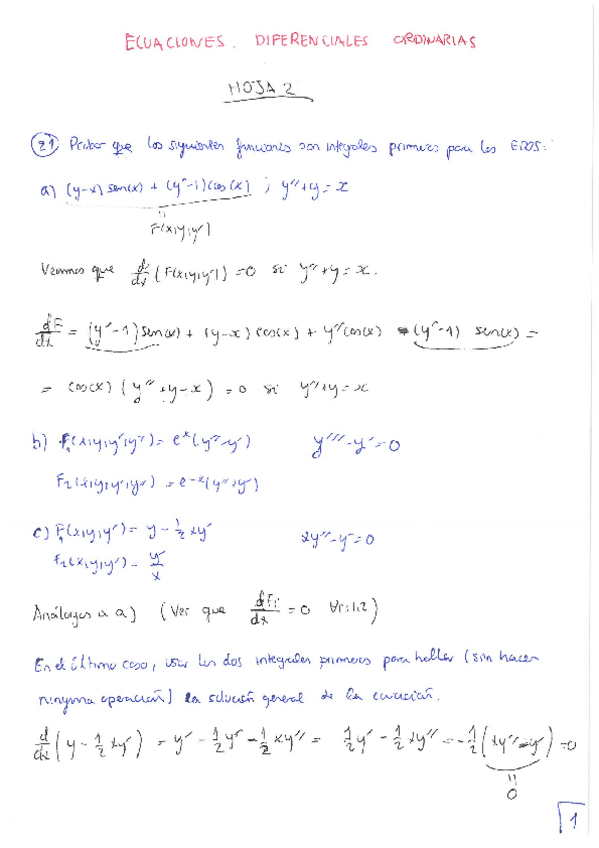 ECUACIONES. DIFERENCIALES ORDINARIAS
HOJA 2
21 Probar que las siguientes funciones son integrales primeras para las EDOS:
a) (y-x) sen(x) + (y'-1) cos(x) ; y''+y=x
F(x,y,y')
Veamos que d/dx (F(x,y,y')) = 0 si y''+y=x.
dF/dx = (y'-1) sen(x) + (y-x) cos(x) + y'' cos(x) - (y'-1) sen(x) =
= cos(x) (y''+y-x) = 0 si y''+y=x
b) F₁(x,y,y',y'') = e^x (y''-y') y'''-y'=0
F₂(x,y,y',y'') = e^-x (y''+y')
c) F₁(x,y,y') = y - 1/2 xy' xy''-y'=0
F₂(x,y,y') = y'/x
Análogas a a) (Ver que dFi/dx = 0 ∀i=1,2)
En el último caso, usar las dos integrales primeras para hallar (sin hacer
ninguna operación) la solución general de la ecuación.
d/dx (y - 1/2 xy') = y' - 1/2 y' - 1/2 xy'' = 1/2 y' - 1/2 xy'' = -1/2 (xy''-y') = 0
0
1